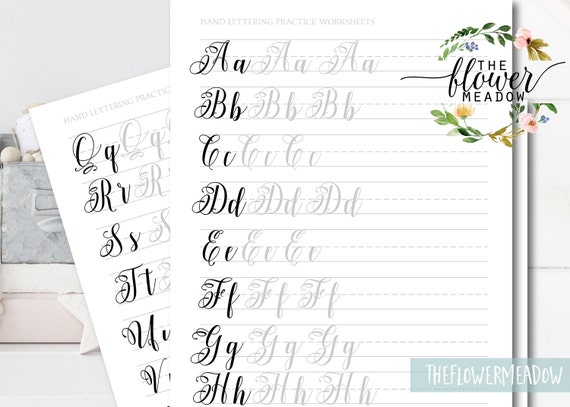 HAND LETTERING PRACTICE WORKSHEETS
Aa Aa Aa
Bb Bb Bb
Cc Cc Cc
Dd Dd Dd
Ee Ee Ee
Ff Ff Ff
Gg Gg Gg
Hh Hh Hh
HAND LETTERING PRACTIC
Qq Q
Rr R
Ss S
Tt
Uu
V
THE
flower
MEADOW
THEFLOWERMEADOW